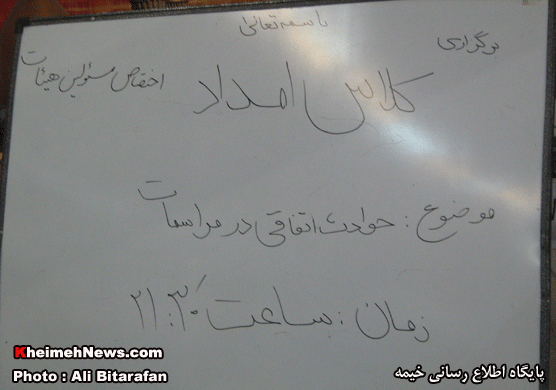 باسمه تعالی
برگزاری
کلاس امداد
اختصاص مسئولین هیئات
موضوع : حوادث اتفاقی در مراسمات
زمان : ساعت ۲۱:۳۰
KheimehNews.com
Photo : Ali Bitarafan
پایگاه اطلاع رسانی خیمه